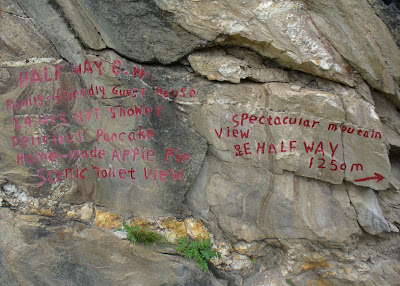 HALF WAY G.H
Family-friendly Guest House
24 Hours Hot Shower
Delicious Pancake
Home-made Apple Pie
Scenic Toilet View
Spectacular moutain
view
HALF WAY
125m